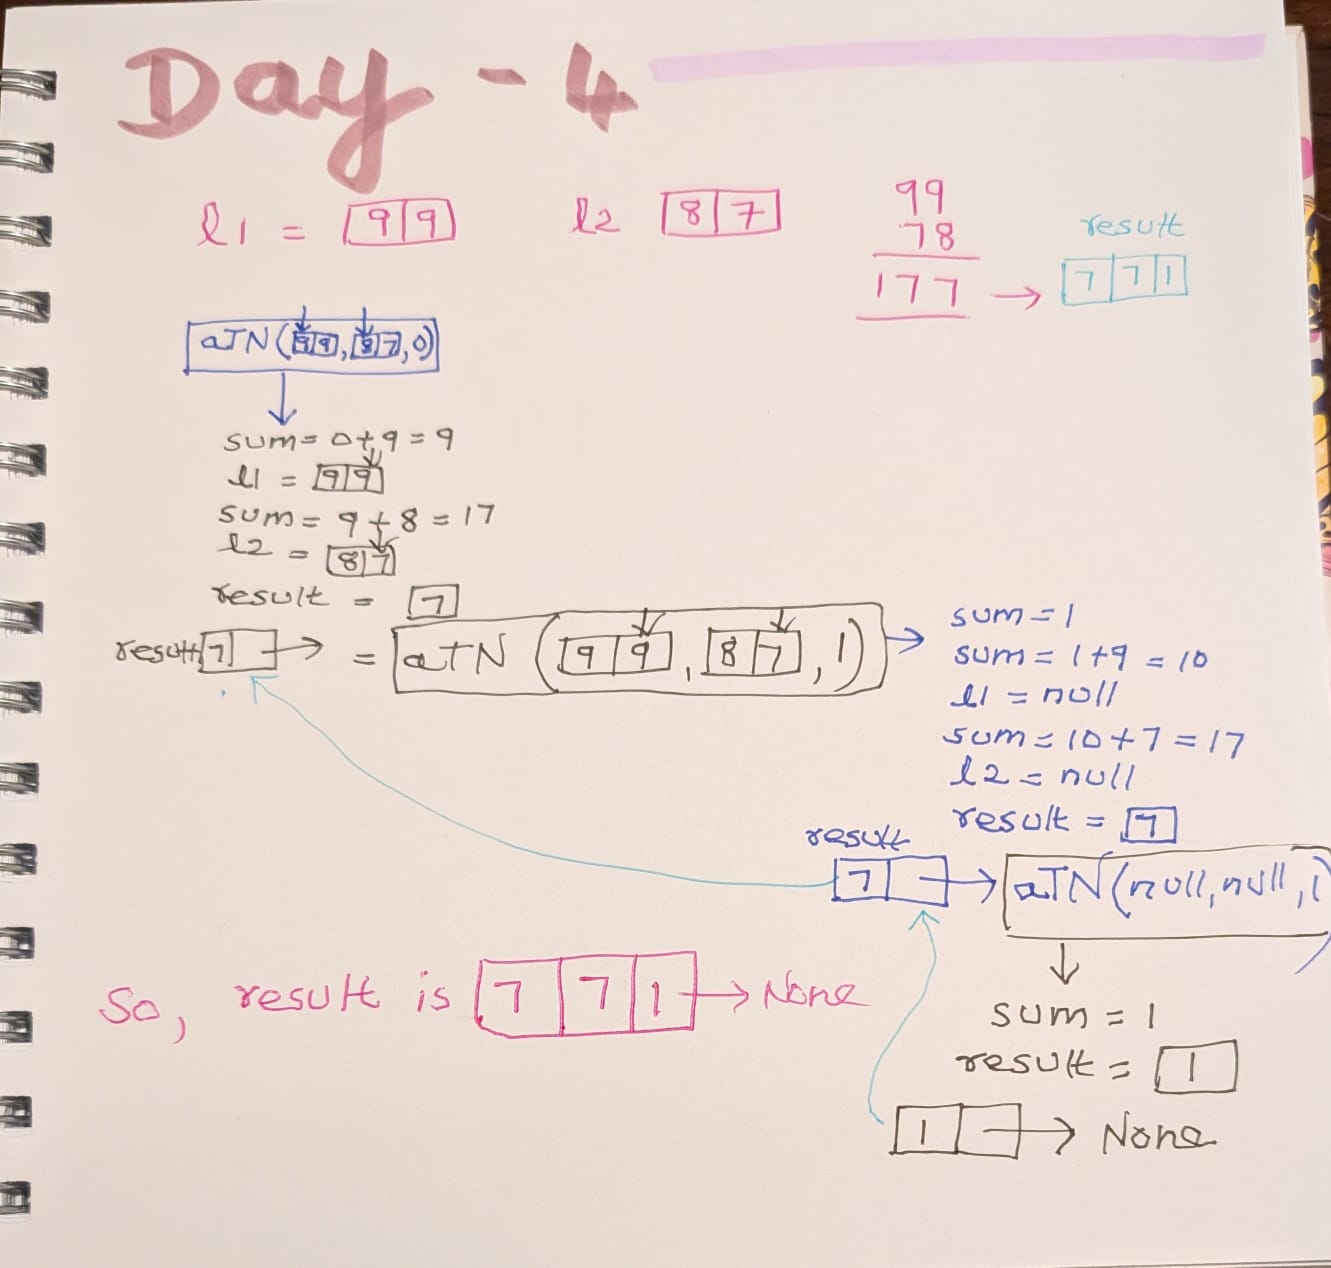 Day - 4
l1 = 9 9
l2 8 7
99
78
177 →
result
7 7 1
aTN(99, 87, 0)
sum = 0+9 = 9
l1 = 9 9
sum = 9+8 = 17
l2 = 8 7
result = 7
result 7 → = aTN (9 9, 8 7, 1) →
sum = 1
sum = 1+9 = 10
l1 = null
sum = 10+7 = 17
l2 = null
result = 7
result
7 → aTN(null, null, 1)
sum = 1
result = 1
1 → None
So, result is 7 7 1 → None